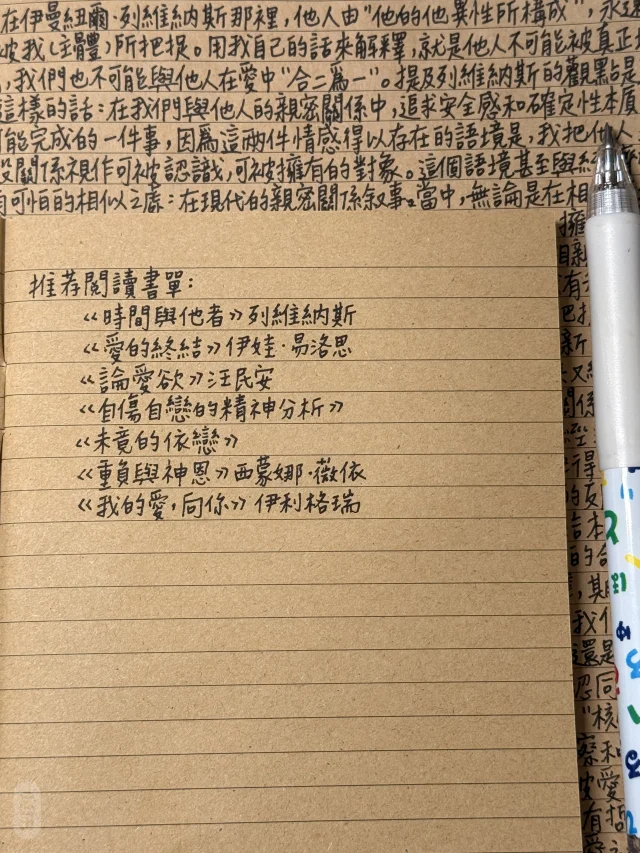 在伊曼紐爾·列維納斯那裡，他人由"他的他異性所構成"，永遠
被我（主體）所把捉。用我自己的話來解釋，就是他人不可能被真正
，我們也不可能與他人在愛中"合二爲一"。提及列維納斯的觀點是
這樣的話：在我們與他人的親密關係中，追求安全感和確定性本質
能完成的一件事，因爲這兩件情感得以存在的語境是，我把他人
關係視作可被認識，可被擁有的對象。這個語境甚至與經
可怕的相似之處：在現代的親密關係敘事當中，無論是在相
推荐閱讀書單：
《時間與他者》列維納斯
《愛的終結》伊娃·易洛思
《論愛欲》汪民安
《自傷自戀的精神分析》
《未竟的依戀》
《重負與神恩》西蒙娜·薇依
《我的愛，向你》伊利格瑞
擁
有
把
新
又
關係
得
的
本
的合
，期
我們
還是
同
"核
察和
被愛
有哲